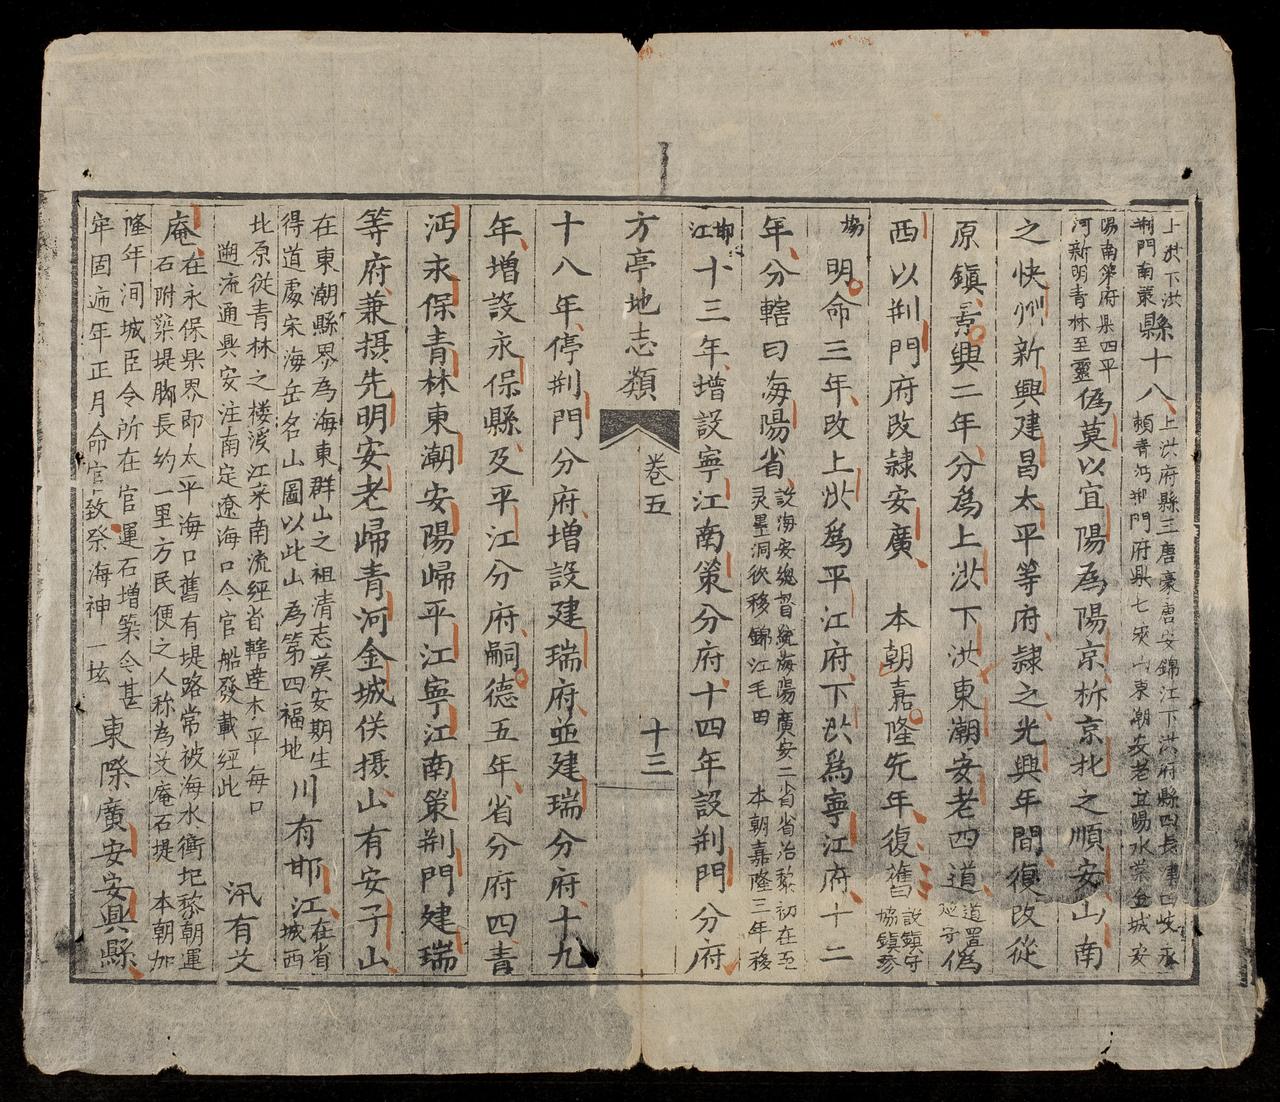 上洪下洪
荆門南策縣十八上洪府縣三唐豪唐安錦江下洪府縣四長津四岐永
頼青沔荆門府縣七夾山東潮安老宜陽水棠金城安
陽南策府縣四平
河新明青林至靈偽莫以宜陽爲陽京柝京北之順安山南
之快州新興建昌太平等府隷之光興年間復改從
原鎮景興二年分爲上洪下洪東潮安老四道道置偽
廵守
西以荆門府改隷安廣 本朝嘉隆先年復舊設鎮守
協鎮參
協明命三年改上洪爲平江府下洪爲寧江府十二
年分轄曰海陽省設海安總督統海陽廣安二省省治黎初在至
灵墨洞後移錦江毛田 本朝嘉隆三年移
邯
江十三年增設寧江南策分府十四年設荆門分府
方亭地志類 卷五 十三
十八年停荆門分府增設建瑞府並建瑞分府十九
年增設永保縣及平江分府嗣德五年省分府四青
沔永保青林東潮安陽歸平江寧江南策荆門建瑞
等府兼摄先明安老歸青河金城佚摄山有安子山
在東潮縣界為海東群山之祖清志漢安期生
得道處宋海岳名山圖以此山為第四福地川有邯江在省
城西
北原從青林之楼渓江来南流經省轄達本平每口
朔流通興安注南定遼海口今官船發載經此 汛有文
庵在永保縣界即太平海口舊有堤路常被海水衝圮黎朝運
石附築堤脚長約一里方民便之人称為文庵石堤 本朝加
隆年间城臣令所在官運石增築今甚
牢固疬年正月命官致祭海神一坛 東際廣安安興縣